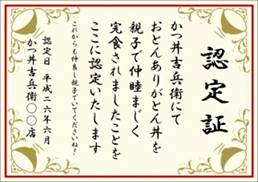 認定証
かつ丼吉兵衛にて
おとんありがとん丼を
親子で仲睦まじく
完食されましたことを
ここに認定いたします
これからも仲良し親子でいてくださいね！
認定日 平成二六年六月
かつ丼吉兵衛〇〇店